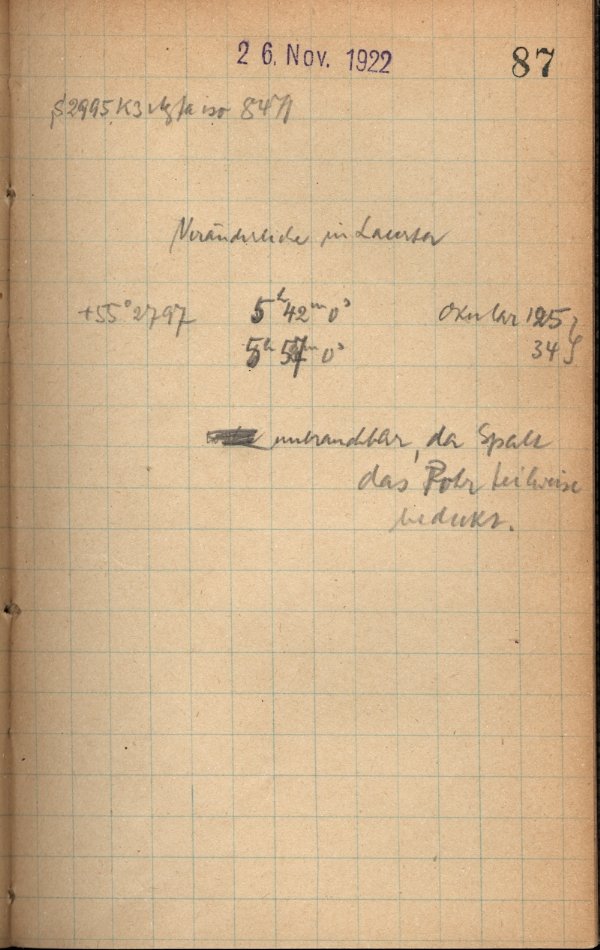 26. Nov. 1922 87
2995 K3 Agfa iso 8471
Veränderliche in Lacerta
+55° 2797 5h 42m 0s Okular 125 }
5h 57m 0s 34 }
unbrauchbar, da Spalt
das Rohr teilweise
bedeckt.